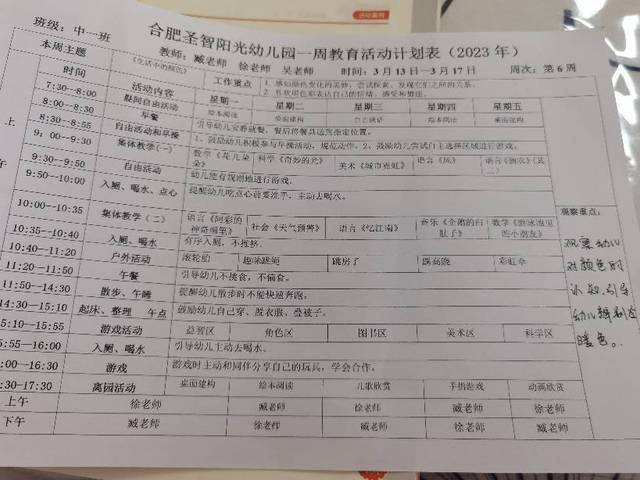 班级：中一班 合肥圣智阳光幼儿园一周教育活动计划表（2023年）
教师：臧老师 徐老师 吴老师 时间：3月13日—3月17日 周次：第6周
本周主题 《生活中的颜色》 工作重点
时间 活动内容 星期一 星期二 星期三 星期四 星期五
7:30—8:00 晨间自由活动
8:00—8:30 早餐 引导幼儿安静就餐，餐后将餐具送到指定位置。
8:30—8:55 自由活动和早操 1、鼓励幼儿积极参与早操活动，规范动作。2、鼓励幼儿尝试自主选择区域进行游戏。
9:00—9:30 集体教学（一） 数学《花儿朵朵》 科学《奇妙的光》 美术《城市霓虹》 语言《风》
9:30—9:50 自由活动 幼儿能有规则地进行游戏。
9:50—10:00 入厕、喝水、点心 提醒幼儿吃点心前要洗手，主动去喝水。
10:00—10:35 集体教学（二） 语言《阿彩的神奇画笔》 社会《天气预警》 语言《忆江南》 数学《游泳池里的小朋友》
10:35—10:40 入厕、喝水 有序入厕，不推挤。
10:40—11:20 户外活动 滚轮胎 趣味跳绳 跳房子 踩高跷 彩虹伞
11:20—11:50 午餐 引导幼儿不挑食，不偏食。
11:50—12:10 散步、午睡 提醒幼儿散步时不能快速奔跑。
14:30—15:10 起床、整理 午点 鼓励幼儿自己穿、脱衣服、叠被子。
5:10—15:55 游戏活动 益智区 角色区 图书区 美术区 科学区
入厕、喝水 引导幼儿主动去喝水。
00—16:30 游戏 游戏时主动和同伴分享自己的玩具，学会合作。
30—17:30 离园活动 桌面建构 绘本阅读 儿歌欣赏 手指游戏 动画欣赏
上午 徐老师 臧老师 徐老师 臧老师 徐老师
下午 臧老师 徐老师 臧老师 徐老师 臧老师
上
观察重点：
观察幼儿
对颜色的
认知，引导
暖色。